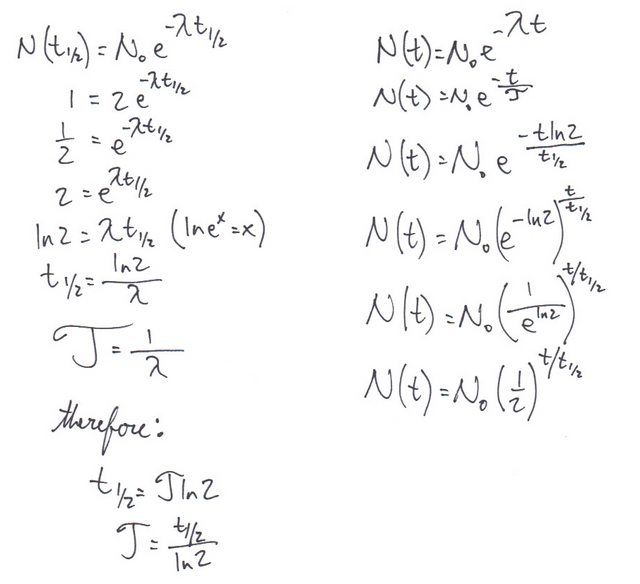 N(t₁/₂) = N₀ e^(-λt₁/₂)
1 = 2 e^(-λt₁/₂)
1/2 = e^(-λt₁/₂)
2 = e^(λt₁/₂)
ln2 = λt₁/₂ (ln eˣ = x)
t₁/₂ = ln2/λ
τ = 1/λ
therefore:
t₁/₂ = τ ln2
τ = t₁/₂/ln2
N(t) = N₀ e^(-λt)
N(t) = N₀ e^(-t/τ)
N(t) = N₀ e^(-t ln2/t₁/₂)
N(t) = N₀ (e^(-ln2))^(t/t₁/₂)
N(t) = N₀ (1/e^(ln2))^(t/t₁/₂)
N(t) = N₀ (1/2)^(t/t₁/₂)